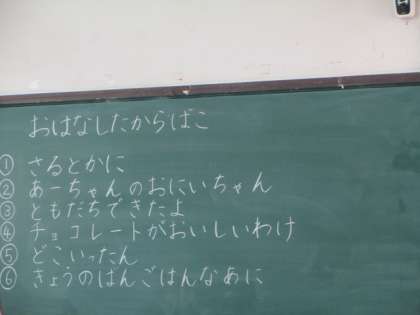 おはなしたからばこ
① さるとかに
② あーちゃんのおにいちゃん
③ ともだちできたよ
④ チョコレートがおいしいわけ
⑤ どこいったん
⑥ きょうのはんごはんなあに